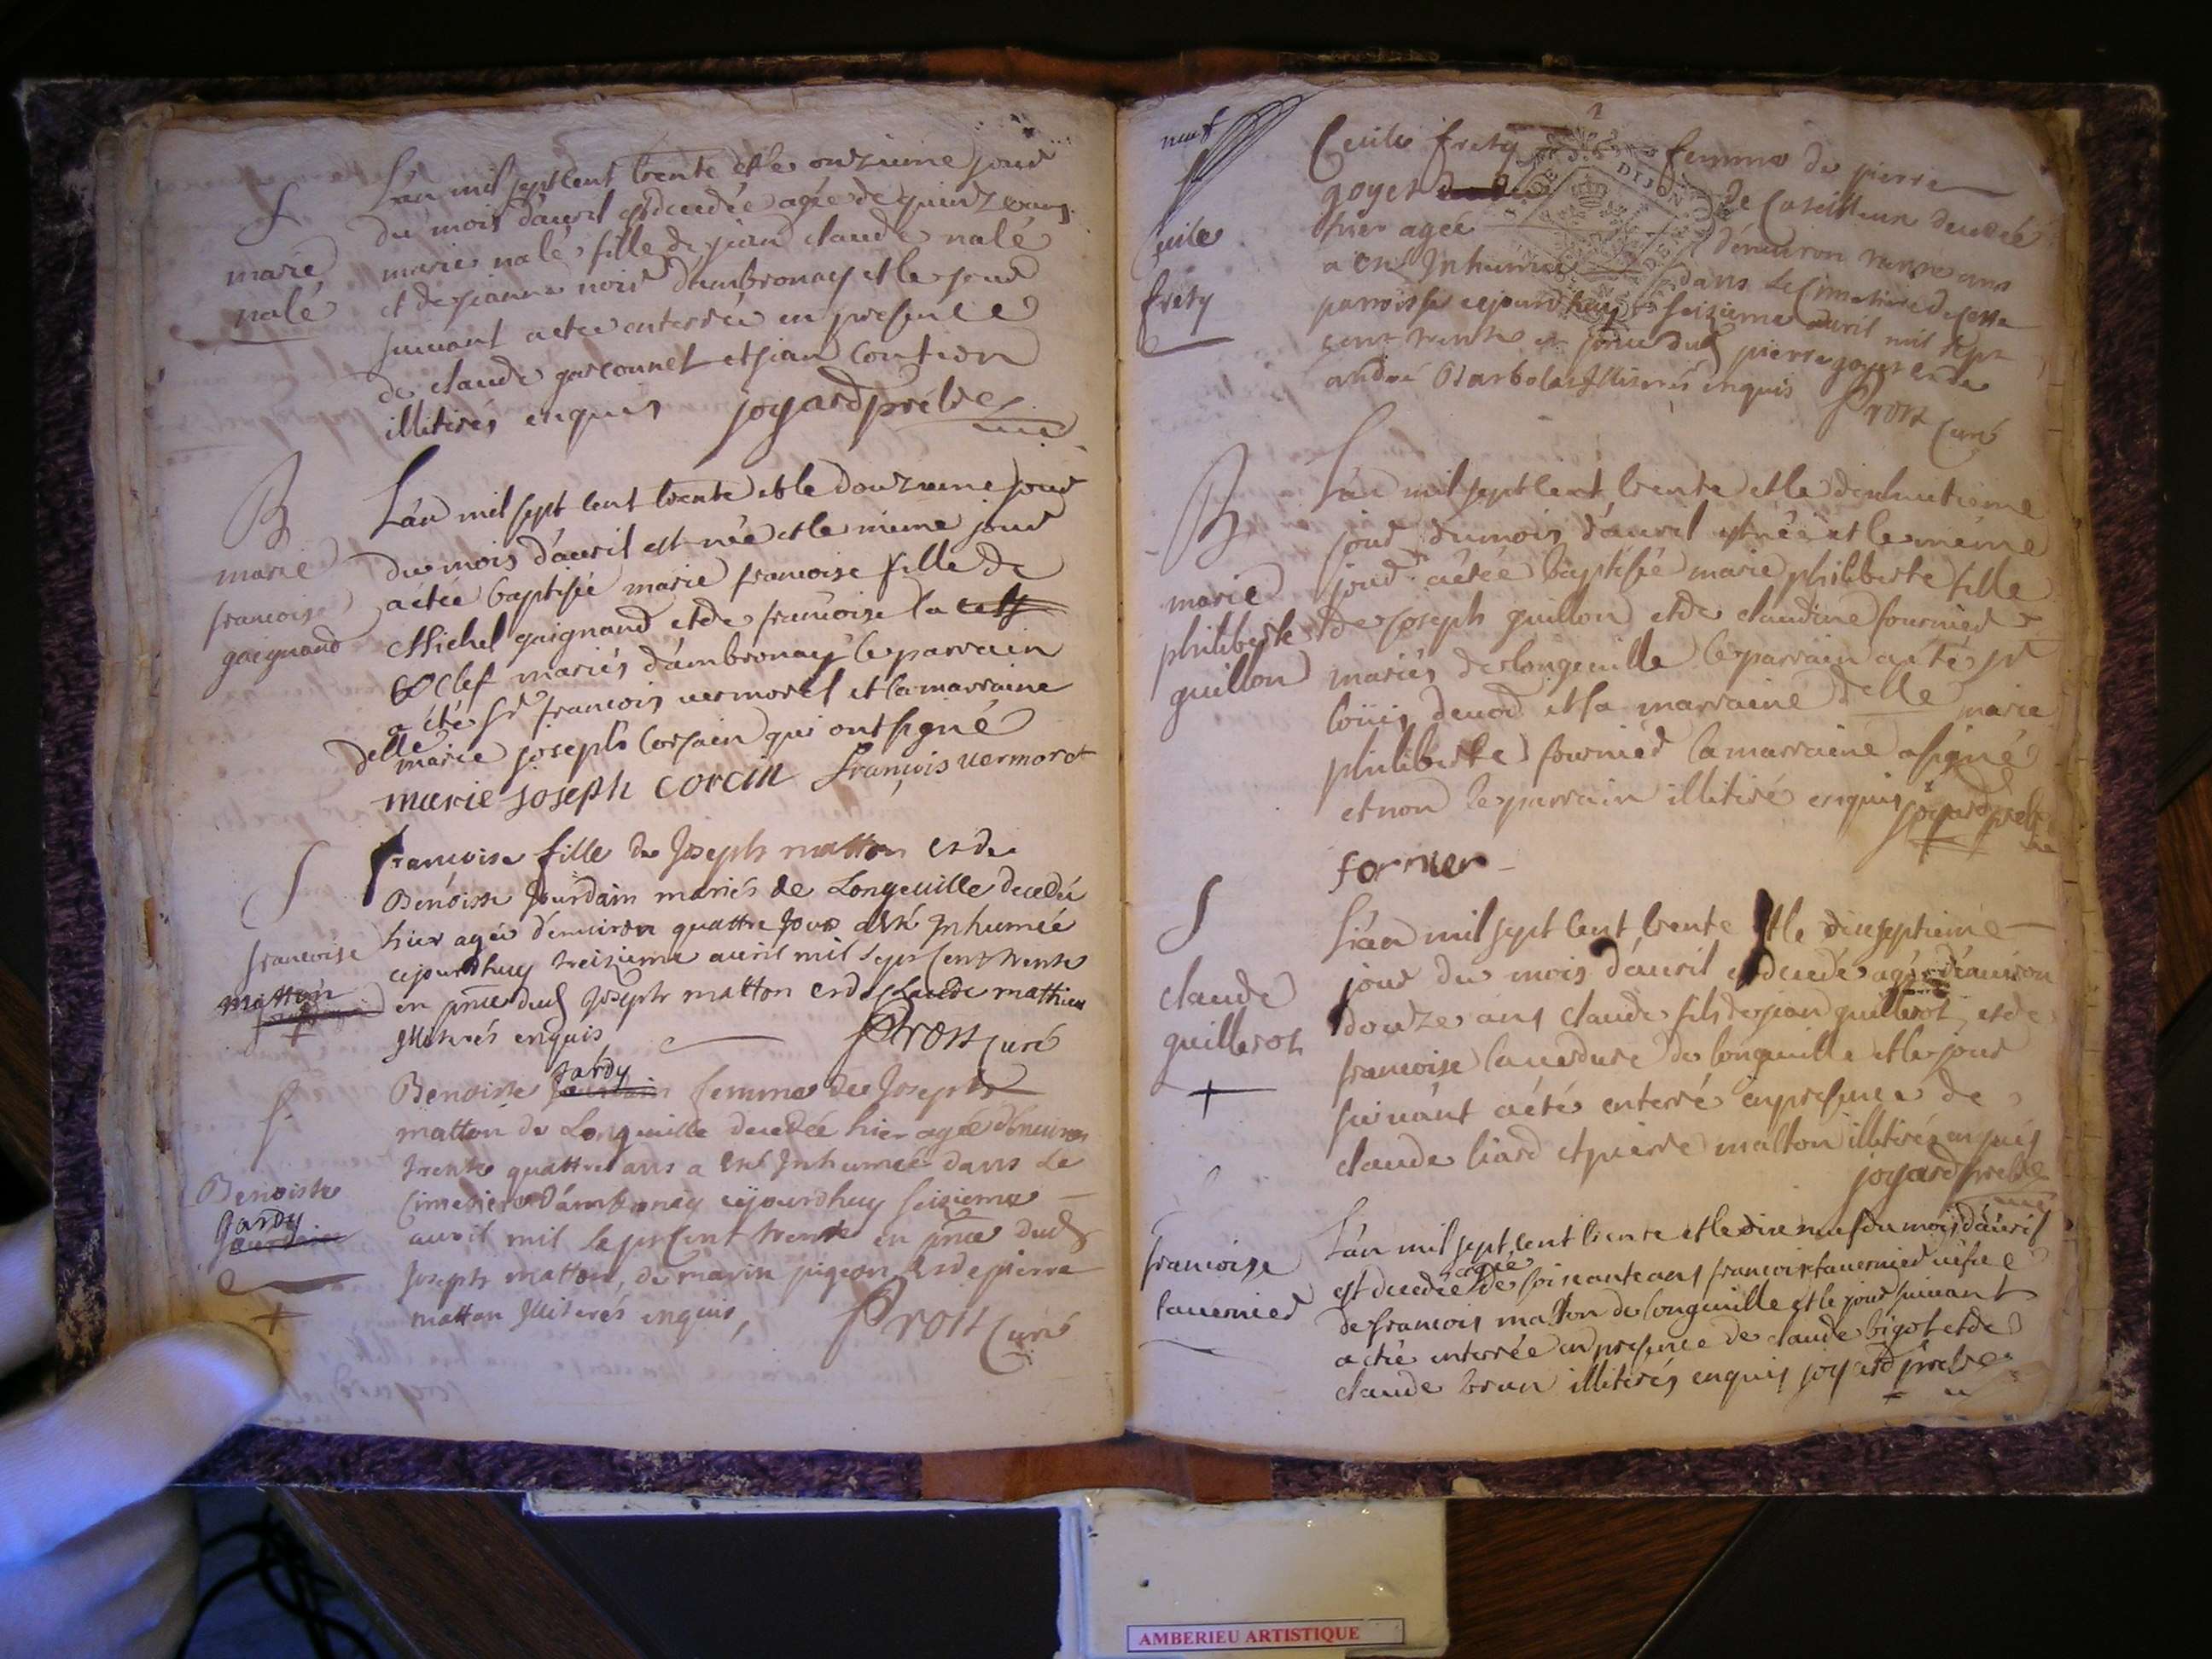 S
marie
nalé
L'an mil sept cent trente et le onzieme jour
du mois d'auril est decedée agée de quinze ans
marie nalé fille de jean claude nalé
et de jeanne noir d'ambronay et le jour
suiuant a etée enterrée en presence
de claude garconnet et jean
illitirés enquis joyard prêbtre
B
marie
francoise
gaignand
L'an mil sept cent trente et le douzieme jour
du mois d'auril est née et le mème jour
a étée baptisée marie francoise fille de
Michel gaignand et de francoise la
clef mariés d'ambronay le parrain
a été Sr francois uermorel et la marraine
delle marie joseph corsain qui ont signé
marie joseph corcin françois uermorel
S
francoise
matton
françoise fille de Joseph matton et de
Benoiste Jourdain mariés de Longeuille decedée
hier agée d'enuiron quattre jours a été Inhumée
cejourdhuy treizieme auril mil sept cent trente
en pnce dud Joseph matton et de Claude mathieu
Illiterés enquis Prost Curé
S
Benoiste
Jardy
Benoiste Jardy femme de Joseph
matton de Longeuille decedée hier agée d'enuiron
trente quattre ans a été Inhumée dans Le
Cimetiere d'ambronay cejourdhuy seizieme
auril mil sept cent trente en pnce dud
Joseph matton, de marin pigeon et de pierre
matton Illiterés enquis, Prost Curé
2
neuf
S
Cecile
frety
Cecile frety femme de pierre
goyet de decedée
hier agée d'enuiron ans
a été Inhumée dans Le Cimetiere de cette
parroisse cejourdhuy seizieme auril mil sept
cent trente en pnce dud pierre goyet et de
andré Illiterés enquis
Prost Curé
B
marie
philiberte
guillon
L'an mil sept cent trente et le dixhuitieme
jour du mois d'auril est née et le mème
jour a étée baptisée marie philiberte fille
de joseph guillon et de claudine fournier
mariés de longeuille le parrain a été sr
loüis deuor et la marraine delle marie
philiberte fournier la marraine a signé
et non le parrain illitiré enquis joyard prebtre
fornier
S
claude
guillerot
L'an mil sept cent trente et le dixseptieme
jour du mois d'auril est decedé agé d'enuiron
douze ans claude fils de jean guillerot et de
francoise lauerdure de longeuille et le jour
suiuant a été enterré en presence de
claude liard et pierre matton illitirés enquis
joyard prebtre
francoise
tauernier
L'an mil sept cent trente et le dix neuf du mois d'auril
est decedée agée de soixante ans francoise tauernier uefue
de francois matton de longeuille et le jour suiuant
a étée enterrée en presence de claude bigot et de
claude brun illitirés enquis joyard prebtre
AMBERIEU ARTISTIQUE